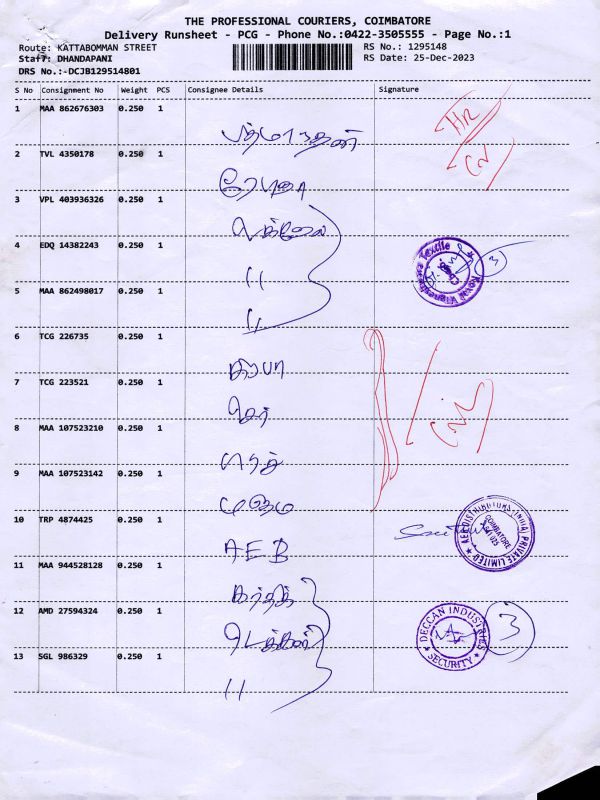 THE PROFESSIONAL COURIERS, COIMBATORE
Delivery Runsheet - PCG - Phone No.:0422-3505555 - Page No.:1
Route: KATTABOMMAN STREET
RS No.: 1295148
Staff: DHANDAPANI
RS Date: 25-Dec-2023
DRS No.:-DCJB129514801
S No Consignment No Weight PCS Consignee Details Signature
1 MAA 862676303 0.250 1
2 TVL 4350178 0.250 1
3 VPL 403936326 0.250 1
4 EDQ 14382243 0.250 1
"
Textile
5 MAA 862498017 0.250 1
"
3
6 TCG 226735 0.250 1
7 TCG 223521 0.250 1
8 MAA 107523210 0.250 1
9 MAA 107523142 0.250 1
10 TRP 4874425 0.250 1
A.E.B
COIMBATORE
PRIVATE LIMITED
11 MAA 944528128 0.250 1
கார்திக்
12 AMD 27594324 0.250 1
டெக்கன்
DECCAN INDUSTRIES
SECURITY
3
13 SGL 986329 0.250 1
"